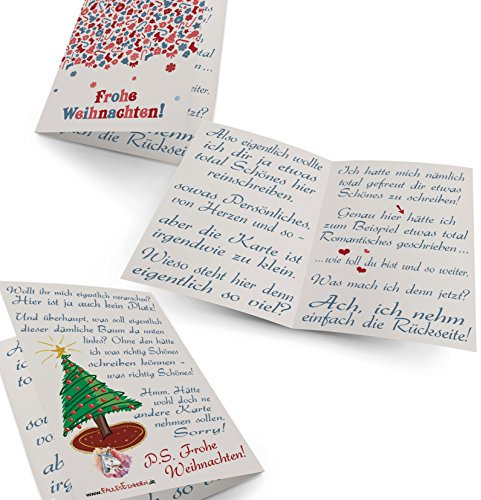 Frohe
Weihnachten!
Also eigentlich wollte
ich dir ja etwas
total Schönes hier
reinschreiben,
sowas Persönliches,
von Herzen und so -
aber die Karte ist
irgendwie zu klein.
Wieso steht hier denn
eigentlich so viel?
Ich hatte mich nämlich
total gefreut dir etwas
Schönes zu schreiben!
Genau hier hätte ich
zum Beispiel etwas total
Romantisches geschrieben...
...wie toll du bist und so weiter.
Was mach ich denn jetzt?
Ach, ich nehm
einfach die Rückseite!
Wollt ihr mich eigentlich verarschen?
Hier ist ja auch kein Platz!
Und überhaupt, was soll eigentlich
dieser dämliche Baum da unten
links? Ohne den hätte
ich was richtig Schönes
schreiben können -
was richtig Schönes!
Hmm. Hätte
wohl doch ne
andere Karte
nehmen sollen.
Sorry!
P.S. Frohe
Weihnachten!